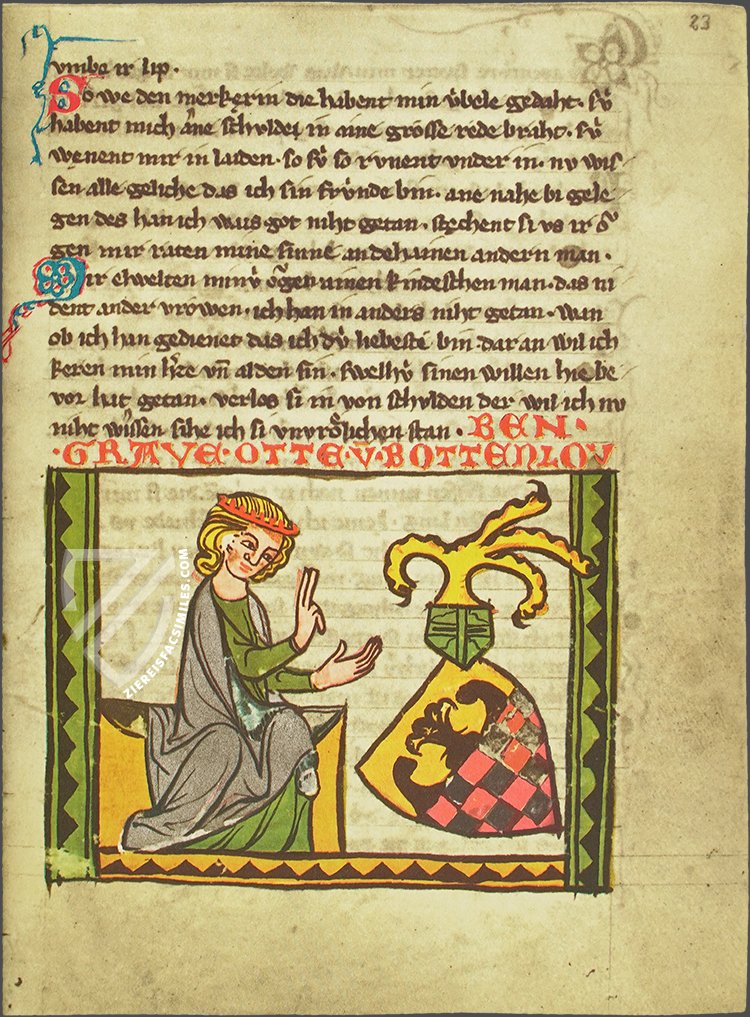 23
vmbe ir lip·
So we den merkerin die habent min v̊bele gedaht· sv̊
habent mich ane schulde in aine grosse rede braht· sv̊
wenent mir in laiden· so sv̊ so rvnent vnder in· nv wis
sen alle geliche das ich sin frv̊nde bin· ane nahe bi gele
gen des han ich wais got niht getan· stechent si vs ir o̊
gen mir raten mine sinne an dehainen andern man·
Mir erwelten minv̊ o̊gen ainen kindeschen man· das ni
dent ander vrowen· ich han in anders niht getan· wan
ob ich han gedienet das ich dv̊ liebeste bin· dar an wil ich
keren min h̾ze vn̄ al den sin· swelhv̊ sinen willen hie be
vor hat getan· verlos si in von schvlden der wil ich nv
niht wissen sihe ich si vnvrȯlichen stan·
BEN·
·GRAVE·OTTE·V·BOTTENLOV
ZIEREISFACSIMILES.COM